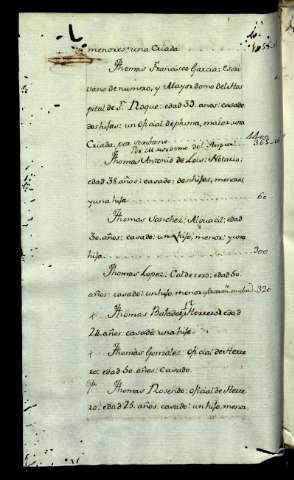 menores: una Criada
Thomas Francisco Garcia: Escri
vano de numero, y Mayordomo del Hos
pital de Sn. Roque: edad 33. años: casado
dos hijas: un oficial de pluma, maior, una
Criada, por escribano
Por Mayordomo del Hospital
Thomas Antonio de Leis: Notario:
edad 38. años: casado: dos hijos, menores
y una hija 60
Thomas Sanchez: Alguacil: edad
30. años: casado: un hijo, menor: y una
hija 300
Thomas Lopez: Calderero: edad 60.
años: casado: un hijo menor 320
+ Thomas Herrero: edad
24. años: casado: una hija
+ Thomas Gonzalez: oficial de Herre
ro: edad 50. años: Casado
Thomas Rosendo: oficial de Herre
ro: edad 25. años: casado: un hijo, menor